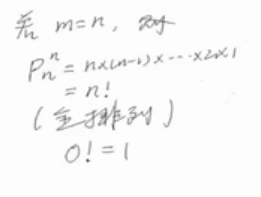 若 m=n, 则
Pₙⁿ = n×(n-1)×···×2×1
= n!
(全排列)
0! = 1